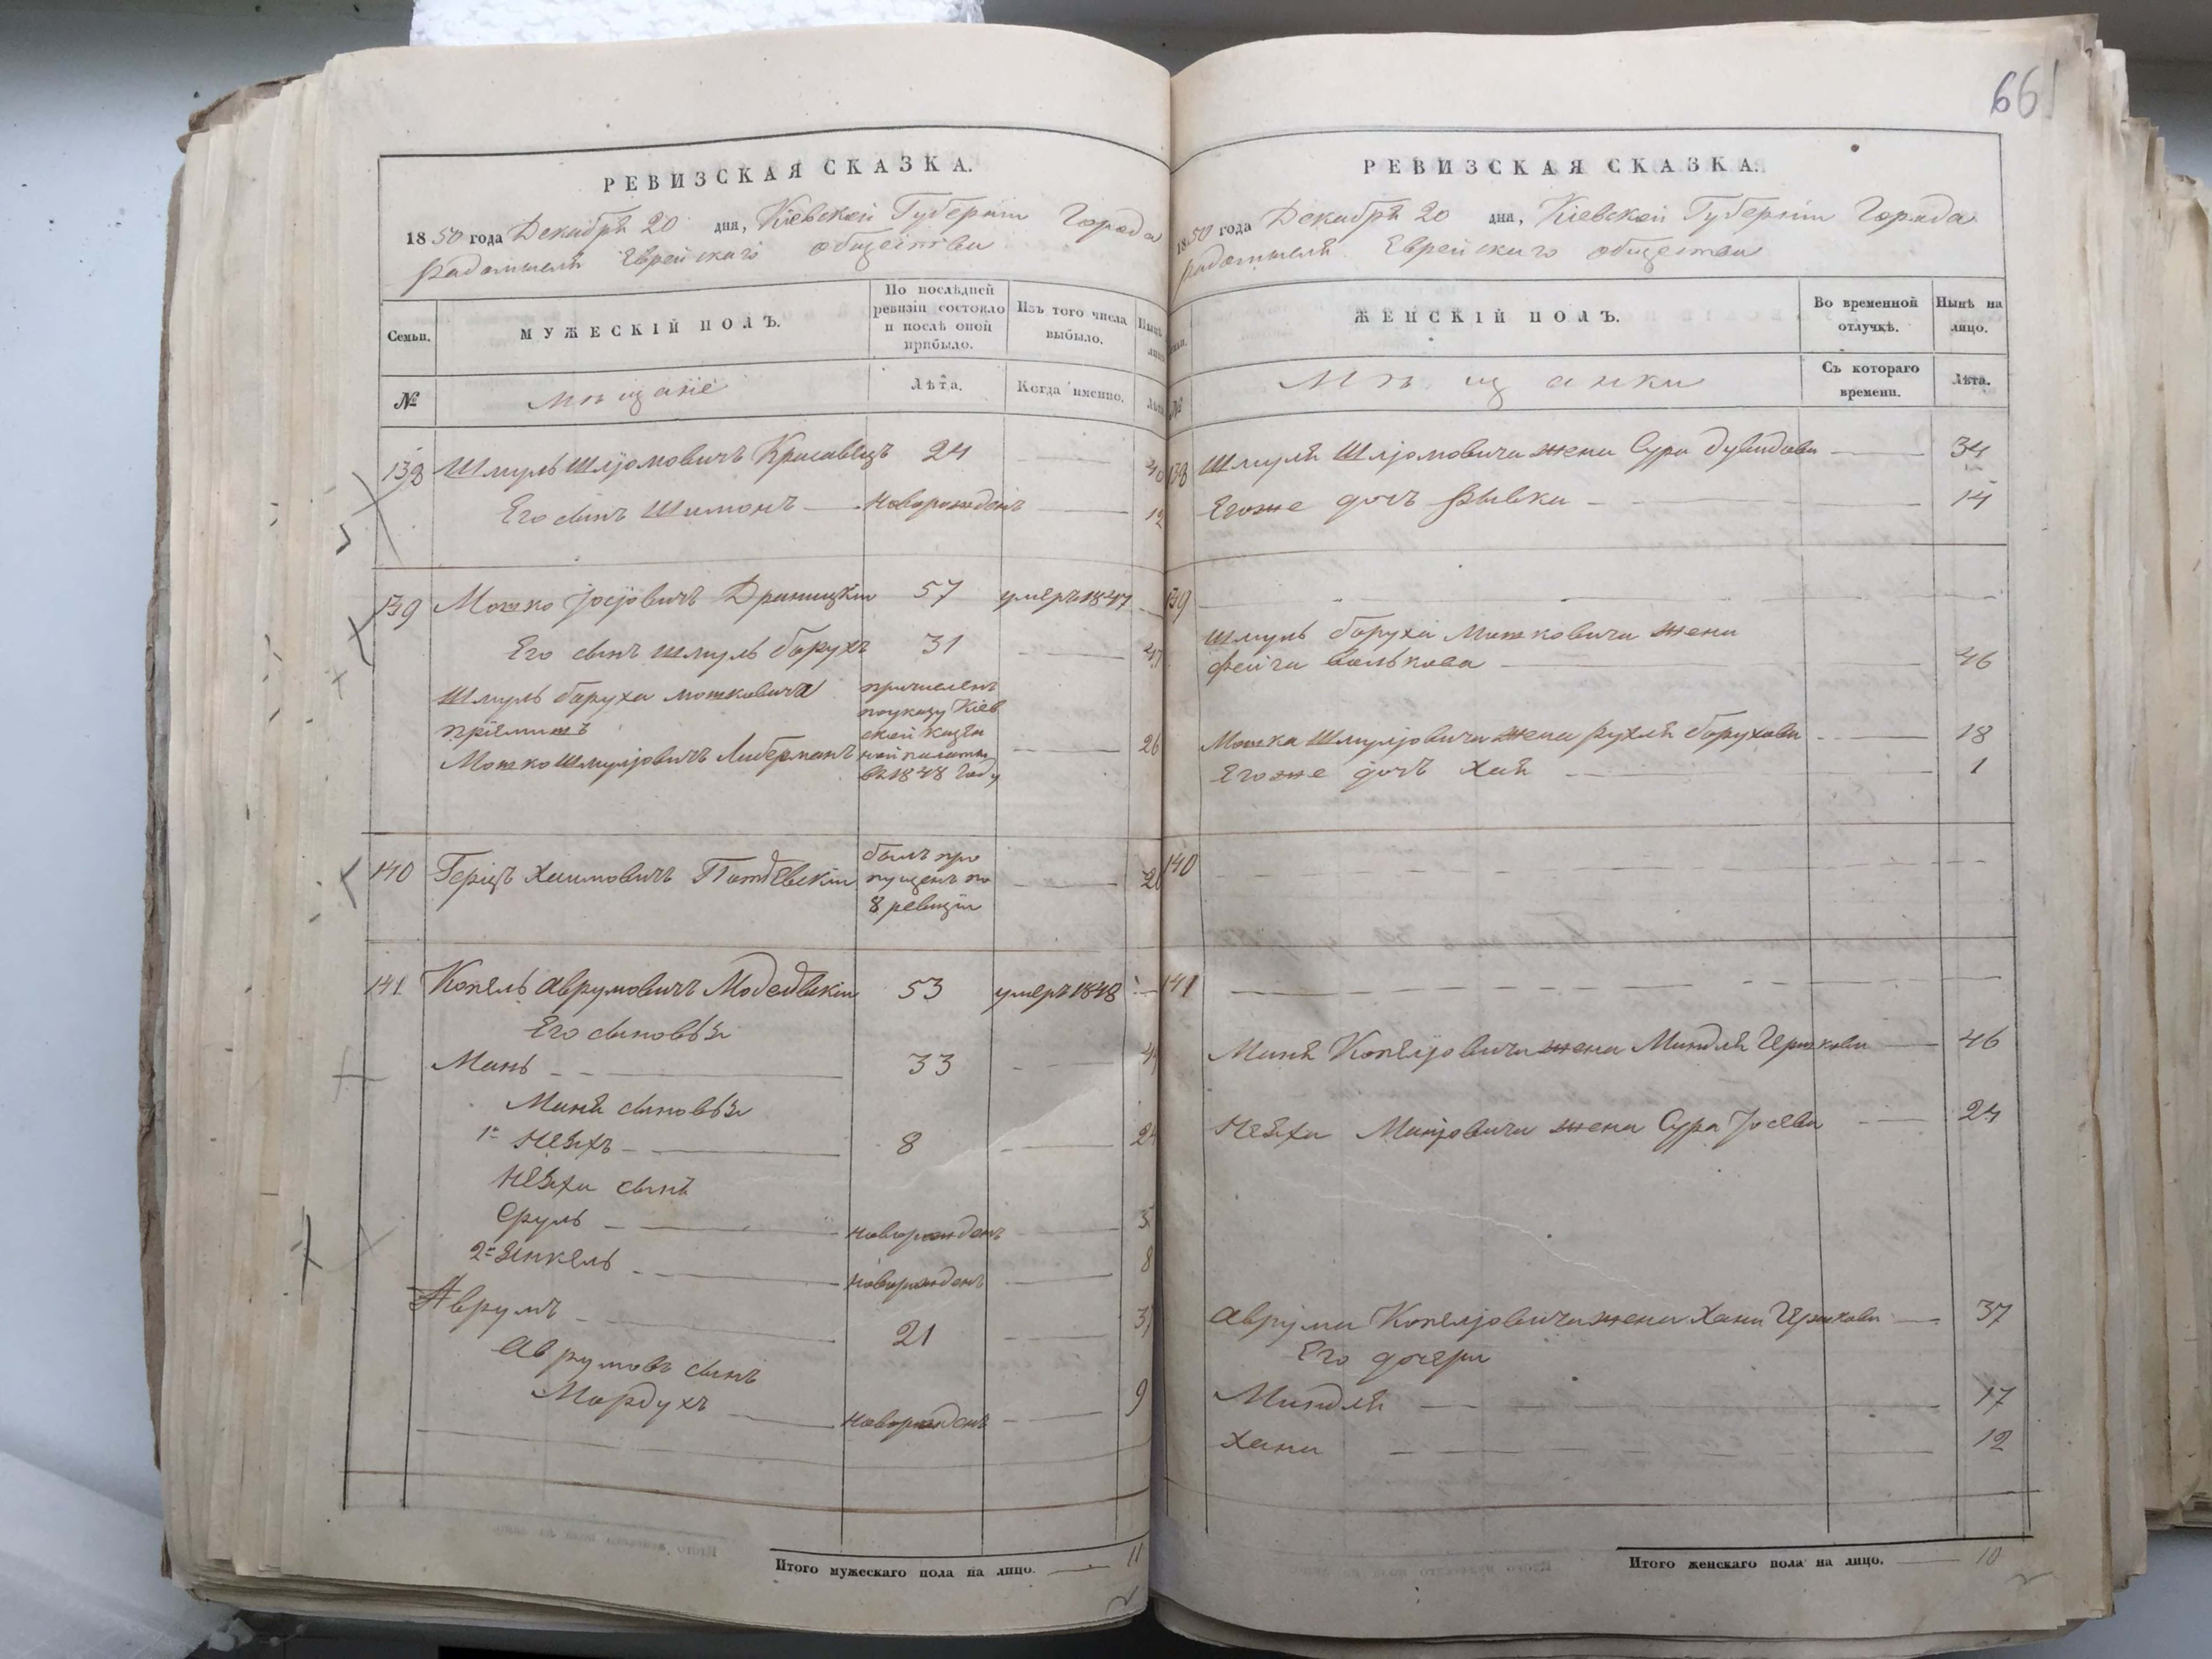 РЕВИЗСКАЯ СКАЗКА.
1850 года Декабря 20 дня, Кіевской Губерніи Города
Радомысля Еврейскаго общества
Семьи.
МУЖЕСКІЙ ПОЛЪ.
По послѣдней
ревизіи состояло
и послѣ оной
прибыло.
Изъ того числа
выбыло.
Нынѣ
лицо
№
Мѣщане
Лѣта.
Когда именно.
Лѣта
138 Шмуль Шліомовичъ Красавецъ 24 — 40
Его сынъ Шимонъ — новорожденъ — 12
139 Мошко Іосіовичъ Драницкій 57 умеръ 1847 —
Его сынъ Шмуль Борухъ 31 — 47
Шмуль Боруха Мошковича
пріемышъ
Мошко Шмуліовичъ Либерманъ
причисленъ
по указу Кіев
ской казен
ной палаты
въ 1848 году
— 26
140 Герцъ Хаимовичъ
былъ про
пущенъ по
8 ревизіи
— 26
141 Копель Аврумовичъ 53 умеръ 1848 —
Его сыновья
Мань — 33 —
Маня сыновья
1й — 8 — 24
сынъ
Сруль — новорожденъ — 5
2й Янкель — новорожденъ — 8
Аврумъ — 21 — 37
Аврумовъ сынъ
Мордухъ — новорожденъ — 9
Итого мужескаго пола на лицо. — 11
661
РЕВИЗСКАЯ СКАЗКА.
1850 года Декабря 20 дня, Кіевской Губерніи Города
Радомысля Еврейскаго общества
№
ЖЕНСКІЙ ПОЛЪ.
Во временной
отлучкѣ.
Нынѣ на
лицо.
Мѣщанки
Съ котораго
времени.
Лѣта.
138 Шмуля Шліомовича жена Сура Дувидова — 34
Егоже дочь Рывка — 14
139 —
Шмуль Боруха Мошковича жена
Фейга Волькова — 46
Мошка Шмуліовича жена Рухля Борухова — 18
Егоже дочь Хая — 1
140 —
141 —
Маня Копеліовича жена Миндля Гершкова — 46
Маніовича жена Сура Іосева — 24
Аврума Копеліовича жена Хана Гершкова — 37
Его дочери
Миндля — 17
Хана — 12
Итого женскаго пола на лицо. — 10